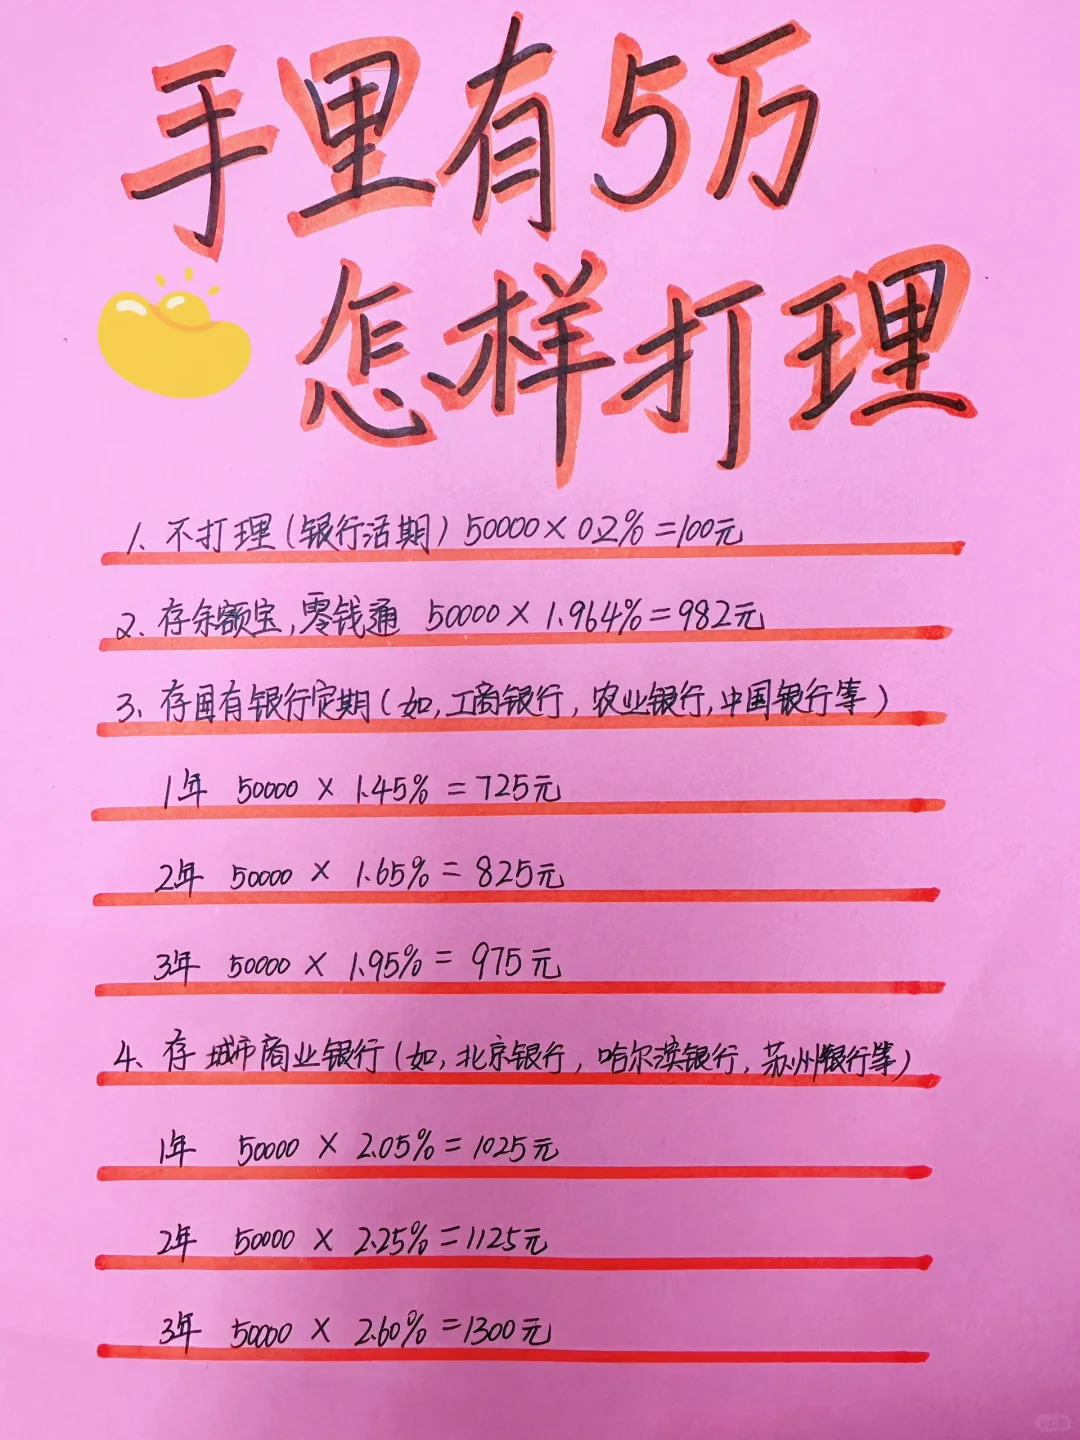 手里有5万
怎样打理
1、不打理(银行活期) 50000×0.2%=100元
2、存余额宝,零钱通 50000×1.964%=982元
3、存国有银行定期(如,工商银行,农业银行,中国银行等)
1年 50000 × 1.45% = 725元
2年 50000 × 1.65% = 825元
3年 50000 × 1.95% = 975元
4、存城市商业银行(如,北京银行,哈尔滨银行,苏州银行等)
1年 50000 × 2.05% = 1025元
2年 50000 × 2.25% = 1125元
3年 50000 × 2.60% = 1300元